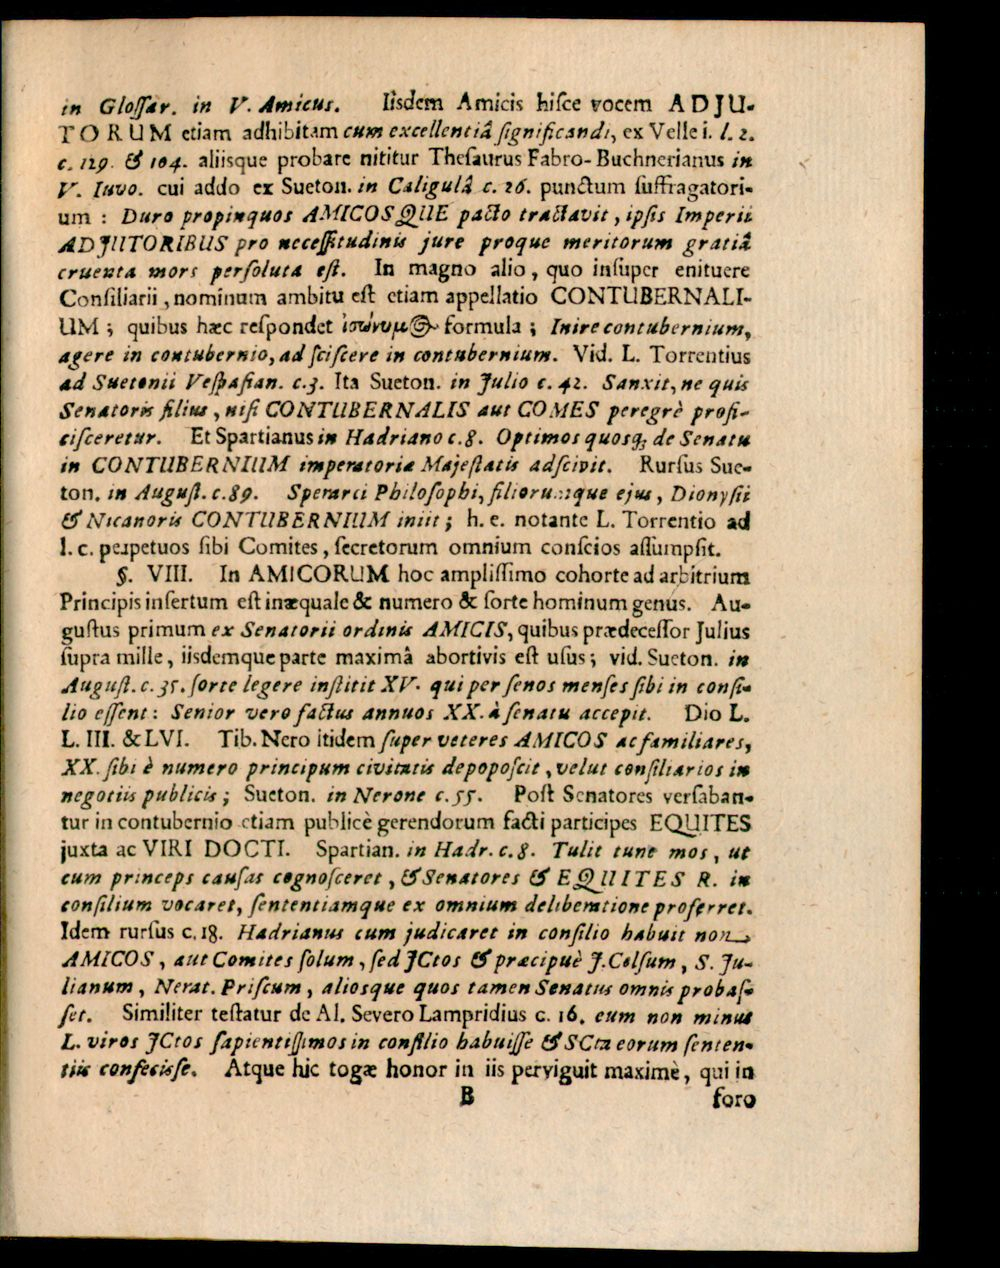 in Glossar. in V. Amicus. Iisdem Amicis hisce vocem ADJU-
TORUM etiam adhibitam cum excellentiâ significandi, ex Vellei. l. 2.
c. 129. & 104. aliisque probare nititur Thesaurus Fabro-Buchnerianus in
V. Iuvo. cui addo ex Sueton. in Caligulâ c. 26. punctum suffragatori-
um : Duro propinquos AMICOSQUE pacto tractavit, ipsis Imperii
ADJUTORIBUS pro necessitudinis jure proque meritorum gratiâ
cruenta mors persoluta est. In magno alio, quo insuper enituere
Consiliarii, nominum ambitu est etiam appellatio CONTUBERNALI-
UM ; quibus hæc respondet formula ; Inire contubernium,
agere in contubernio, ad sciscere in contubernium. Vid. L. Torrentius
ad Suetonii Vespasian. c. 3. Ita Sueton. in Julio c. 42. Sanxit, ne quis
Senatoris filius, nisi CONTUBERNALIS aut COMES peregrè profi-
cisceretur. Et Spartianus in Hadriano c. 8. Optimos quosq; de Senatu
in CONTUBERNIUM imperatoria Majestatis adscivit. Rursus Sue-
ton. in August. c. 89. Sperarei Philosophi, filiorumque ejus, Dionysii
& Nicanoris CONTUBERNIUM iniit ; h. e. notante L. Torrentio ad
l. c. perpetuos sibi Comites, secretorum omnium conscios assumpsit.
§. VIII. In AMICORUM hoc amplissimo cohorte ad arbitrium
Principis insertum est inæquale & numero & sorte hominum genus. Au-
gustus primum ex Senatorii ordinis AMICIS, quibus prædecessor Julius
supra mille, iisdemque parte maximâ abortivis est usus ; vid. Sueton. in
August. c. 35. sorte legere institit XV. qui per senos menses sibi in consi-
lio essent : Senior vero factus annuos XX. à senatu accepit. Dio L.
L. III. & LVI. Tib. Nero itidem super veteres AMICOS ac familiares,
XX. sibi è numero principum civitatis depoposcit, velut consiliarios in
negotiis publicis ; Sueton. in Nerone c. 55. Post Senatores versaban-
tur in contubernio etiam publicè gerendorum facti participes EQUITES
juxta ac VIRI DOCTI. Spartian. in Hadr. c. 8. Tulit tunc mos, ut
cum princeps causas cognosceret, & Senatores & EQUITES R. in
consilium vocaret, sententiamque ex omnium deliberatione proferret.
Idem rursus c. 18. Hadrianus cum judicaret in consilio habuit non
AMICOS, aut Comites solum, sed JCtos & præcipuè J. Celsum, S. Ju-
lianum, Nerat. Priscum, aliosque quos tamen Senatus omnis probas-
set. Similiter testatur de Al. Severo Lampridius c. 16. eum non minus
L. viros JCtos sapientissimos in consilio habuisse & SCta eorum senten-
tiis confecisse. Atque hic togæ honor in iis perviguit maximè, qui in
B foro